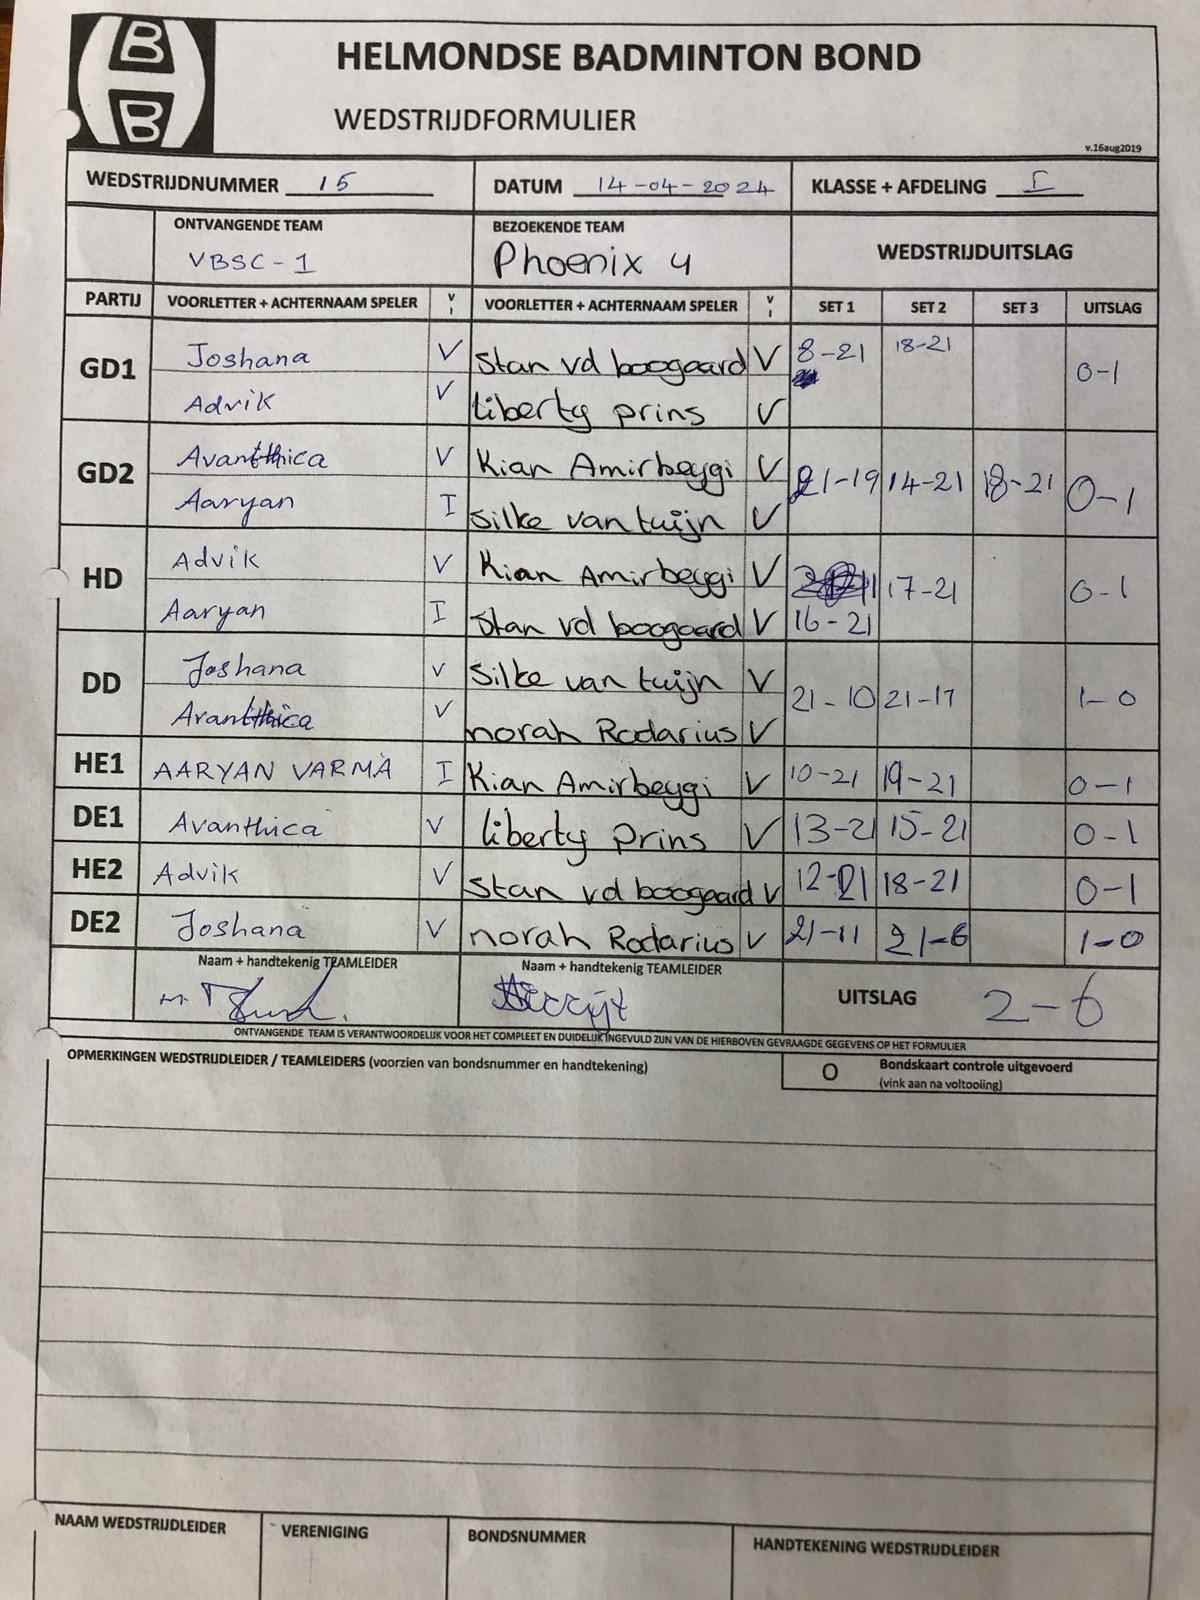 B
B
HELMONDSE BADMINTON BOND
WEDSTRIJDFORMULIER
v.16aug2019
WEDSTRIJDNUMMER 15 DATUM 14-04-2024 KLASSE + AFDELING I
ONTVANGENDE TEAM BEZOEKENDE TEAM WEDSTRIJDUITSLAG
VBSC-1 Phoenix 4
PARTIJ VOORLETTER + ACHTERNAAM SPELER V I VOORLETTER + ACHTERNAAM SPELER V I SET 1 SET 2 SET 3 UITSLAG
GD1 Joshana V Stan vd boogaard V 8-21 18-21 0-1
Advik V liberty prins V
GD2 Avanthica V Kian Amirbeygi V 21-19 14-21 18-21 0-1
Aaryan I Silke van tuijn V
HD Advik V Kian Amirbeygi V 17-21 0-1
Aaryan I Stan vd boogaard V 16-21
DD Joshana V Silke van tuijn V 21-10 21-17 1-0
Avanthica V norah Rodarius V
HE1 AARYAN VARMA I Kian Amirbeygi V 10-21 19-21 0-1
DE1 Avanthica V liberty prins V 13-21 15-21 0-1
HE2 Advik V Stan vd boogaard V 12-21 18-21 0-1
DE2 Joshana V norah Rodarius V 21-11 21-6 1-0
Naam + handtekenig TEAMLEIDER Naam + handtekenig TEAMLEIDER UITSLAG 2-6
ONTVANGENDE TEAM IS VERANTWOORDELIJK VOOR HET COMPLEET EN DUIDELIJK INGEVULD ZIJN VAN DE HIERBOVEN GEVRAAGDE GEGEVENS OP HET FORMULIER
OPMERKINGEN WEDSTRIJDLEIDER / TEAMLEIDERS (voorzien van bondsnummer en handtekening) O Bondskaart controle uitgevoerd
(vink aan na voltooiing)
NAAM WEDSTRIJDLEIDER VERENIGING BONDSNUMMER HANDTEKENING WEDSTRIJDLEIDER